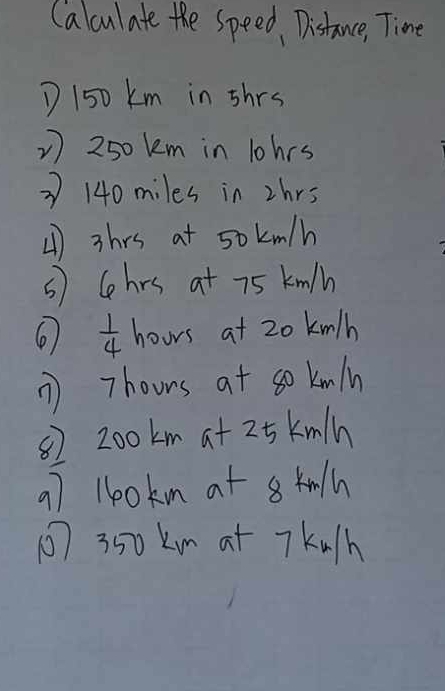 Calculate the Speed, Distance, Time
1) 150 km in 5hrs
2) 250 km in 10hrs
3) 140 miles in 2hrs
4) 3hrs at 50 km/h
5) 6hrs at 75 km/h
6) 1/4 hours at 20 km/h
7) 7hours at 80 km/h
8) 200 km at 25 km/h
9) 160km at 8 km/h
10) 350 km at 7 km/h